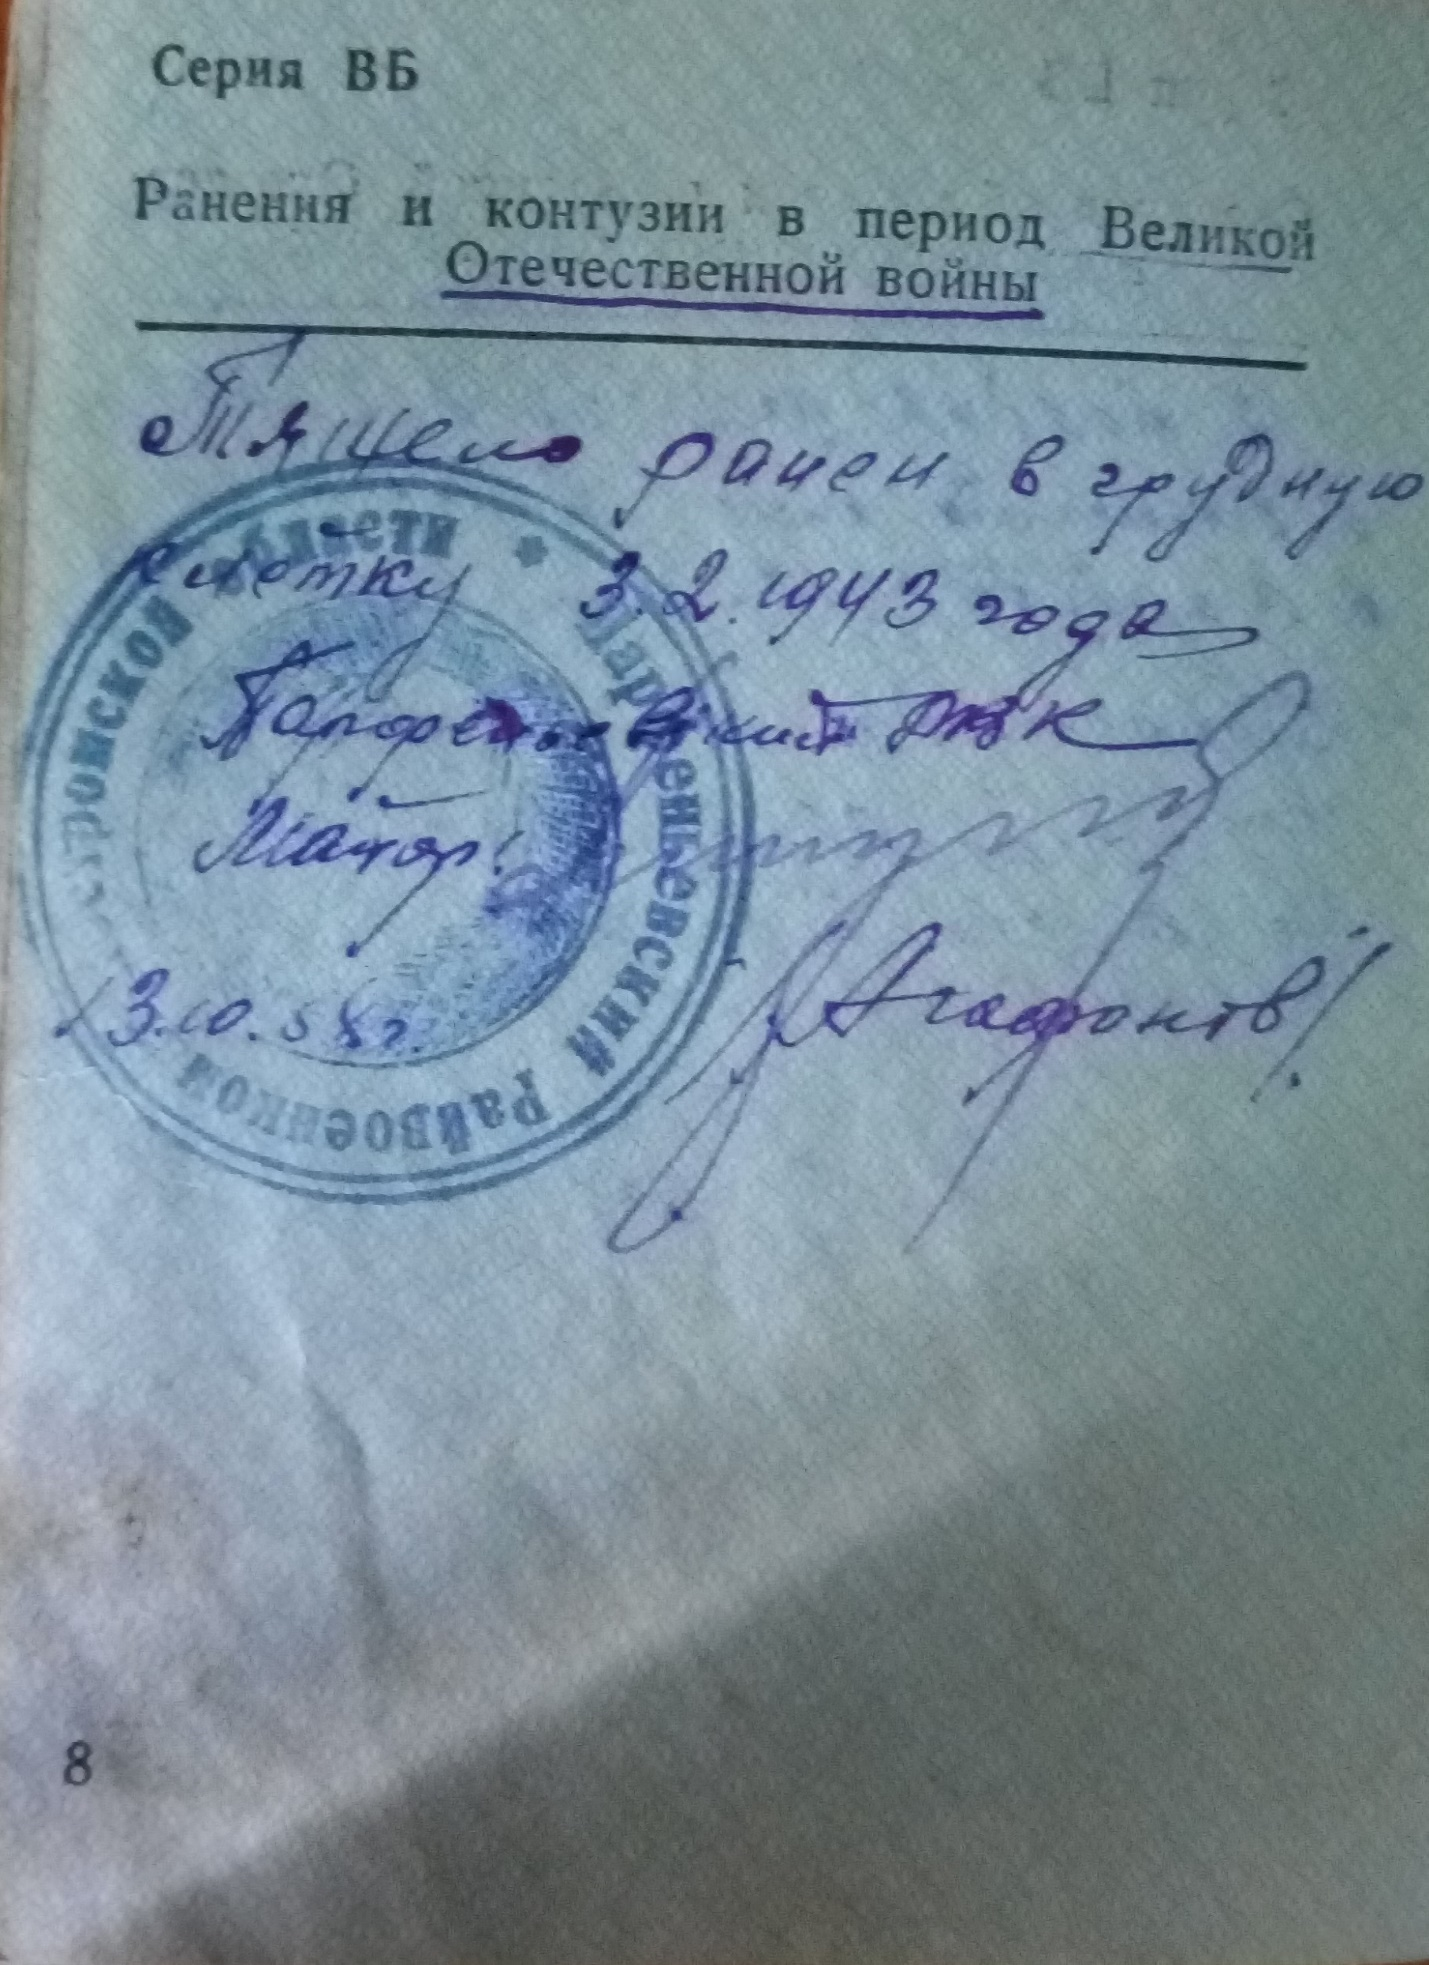 Серия ВБ
Ранения и контузии в период Великой
Отечественной войны
Тяжело ранен в грудную
клетку 3.2.1943 года
Парфеньевский РВК
Майор:
/Агафонов/
13.10.58г.
Костромской области * Парфеньевский Райвоенком
8